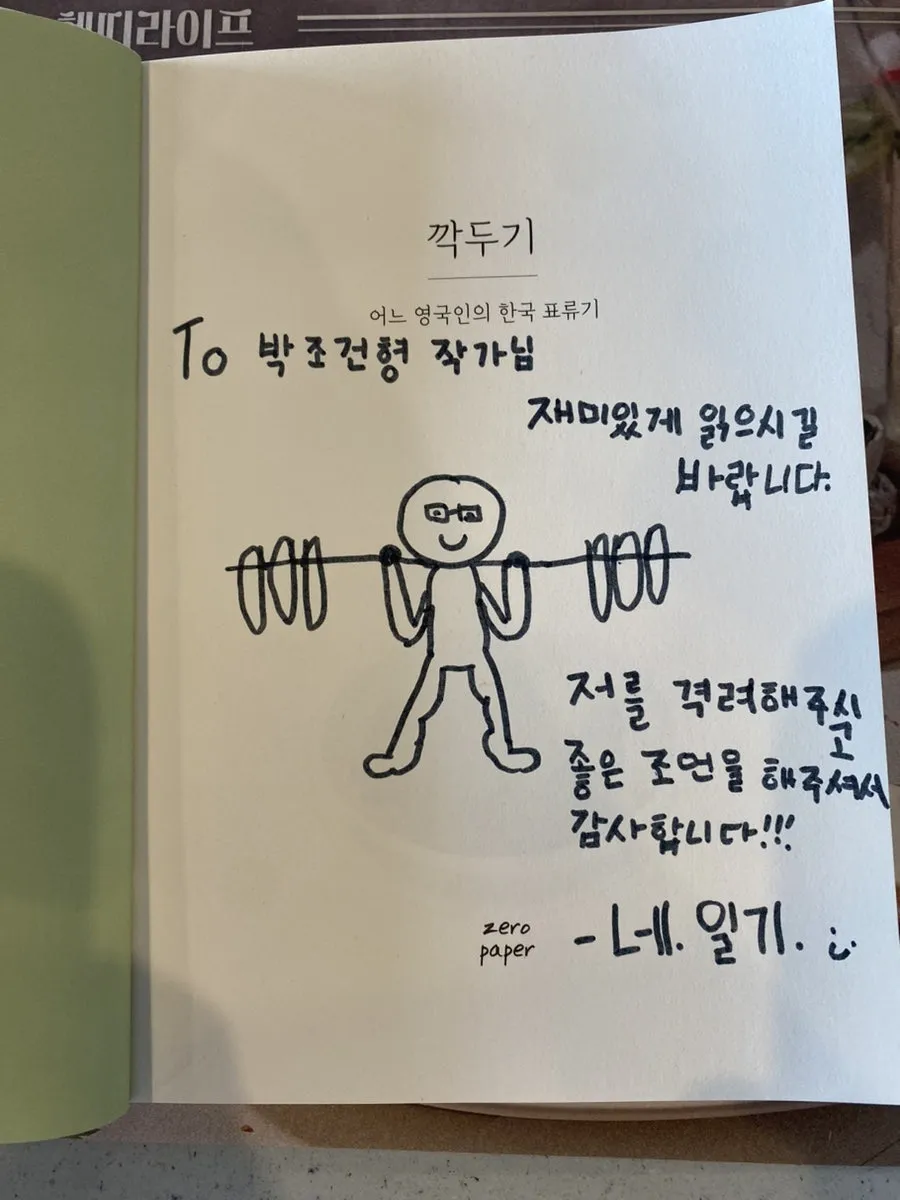 라이프
깍두기
어느 영국인의 한국 표류기
To 박조건형 작가님
재미있게 읽으시길
바랍니다.
저를 격려해주시고
좋은 조언을 해주셔서
감사합니다!!!
zero
paper
- 네. 일기. :)